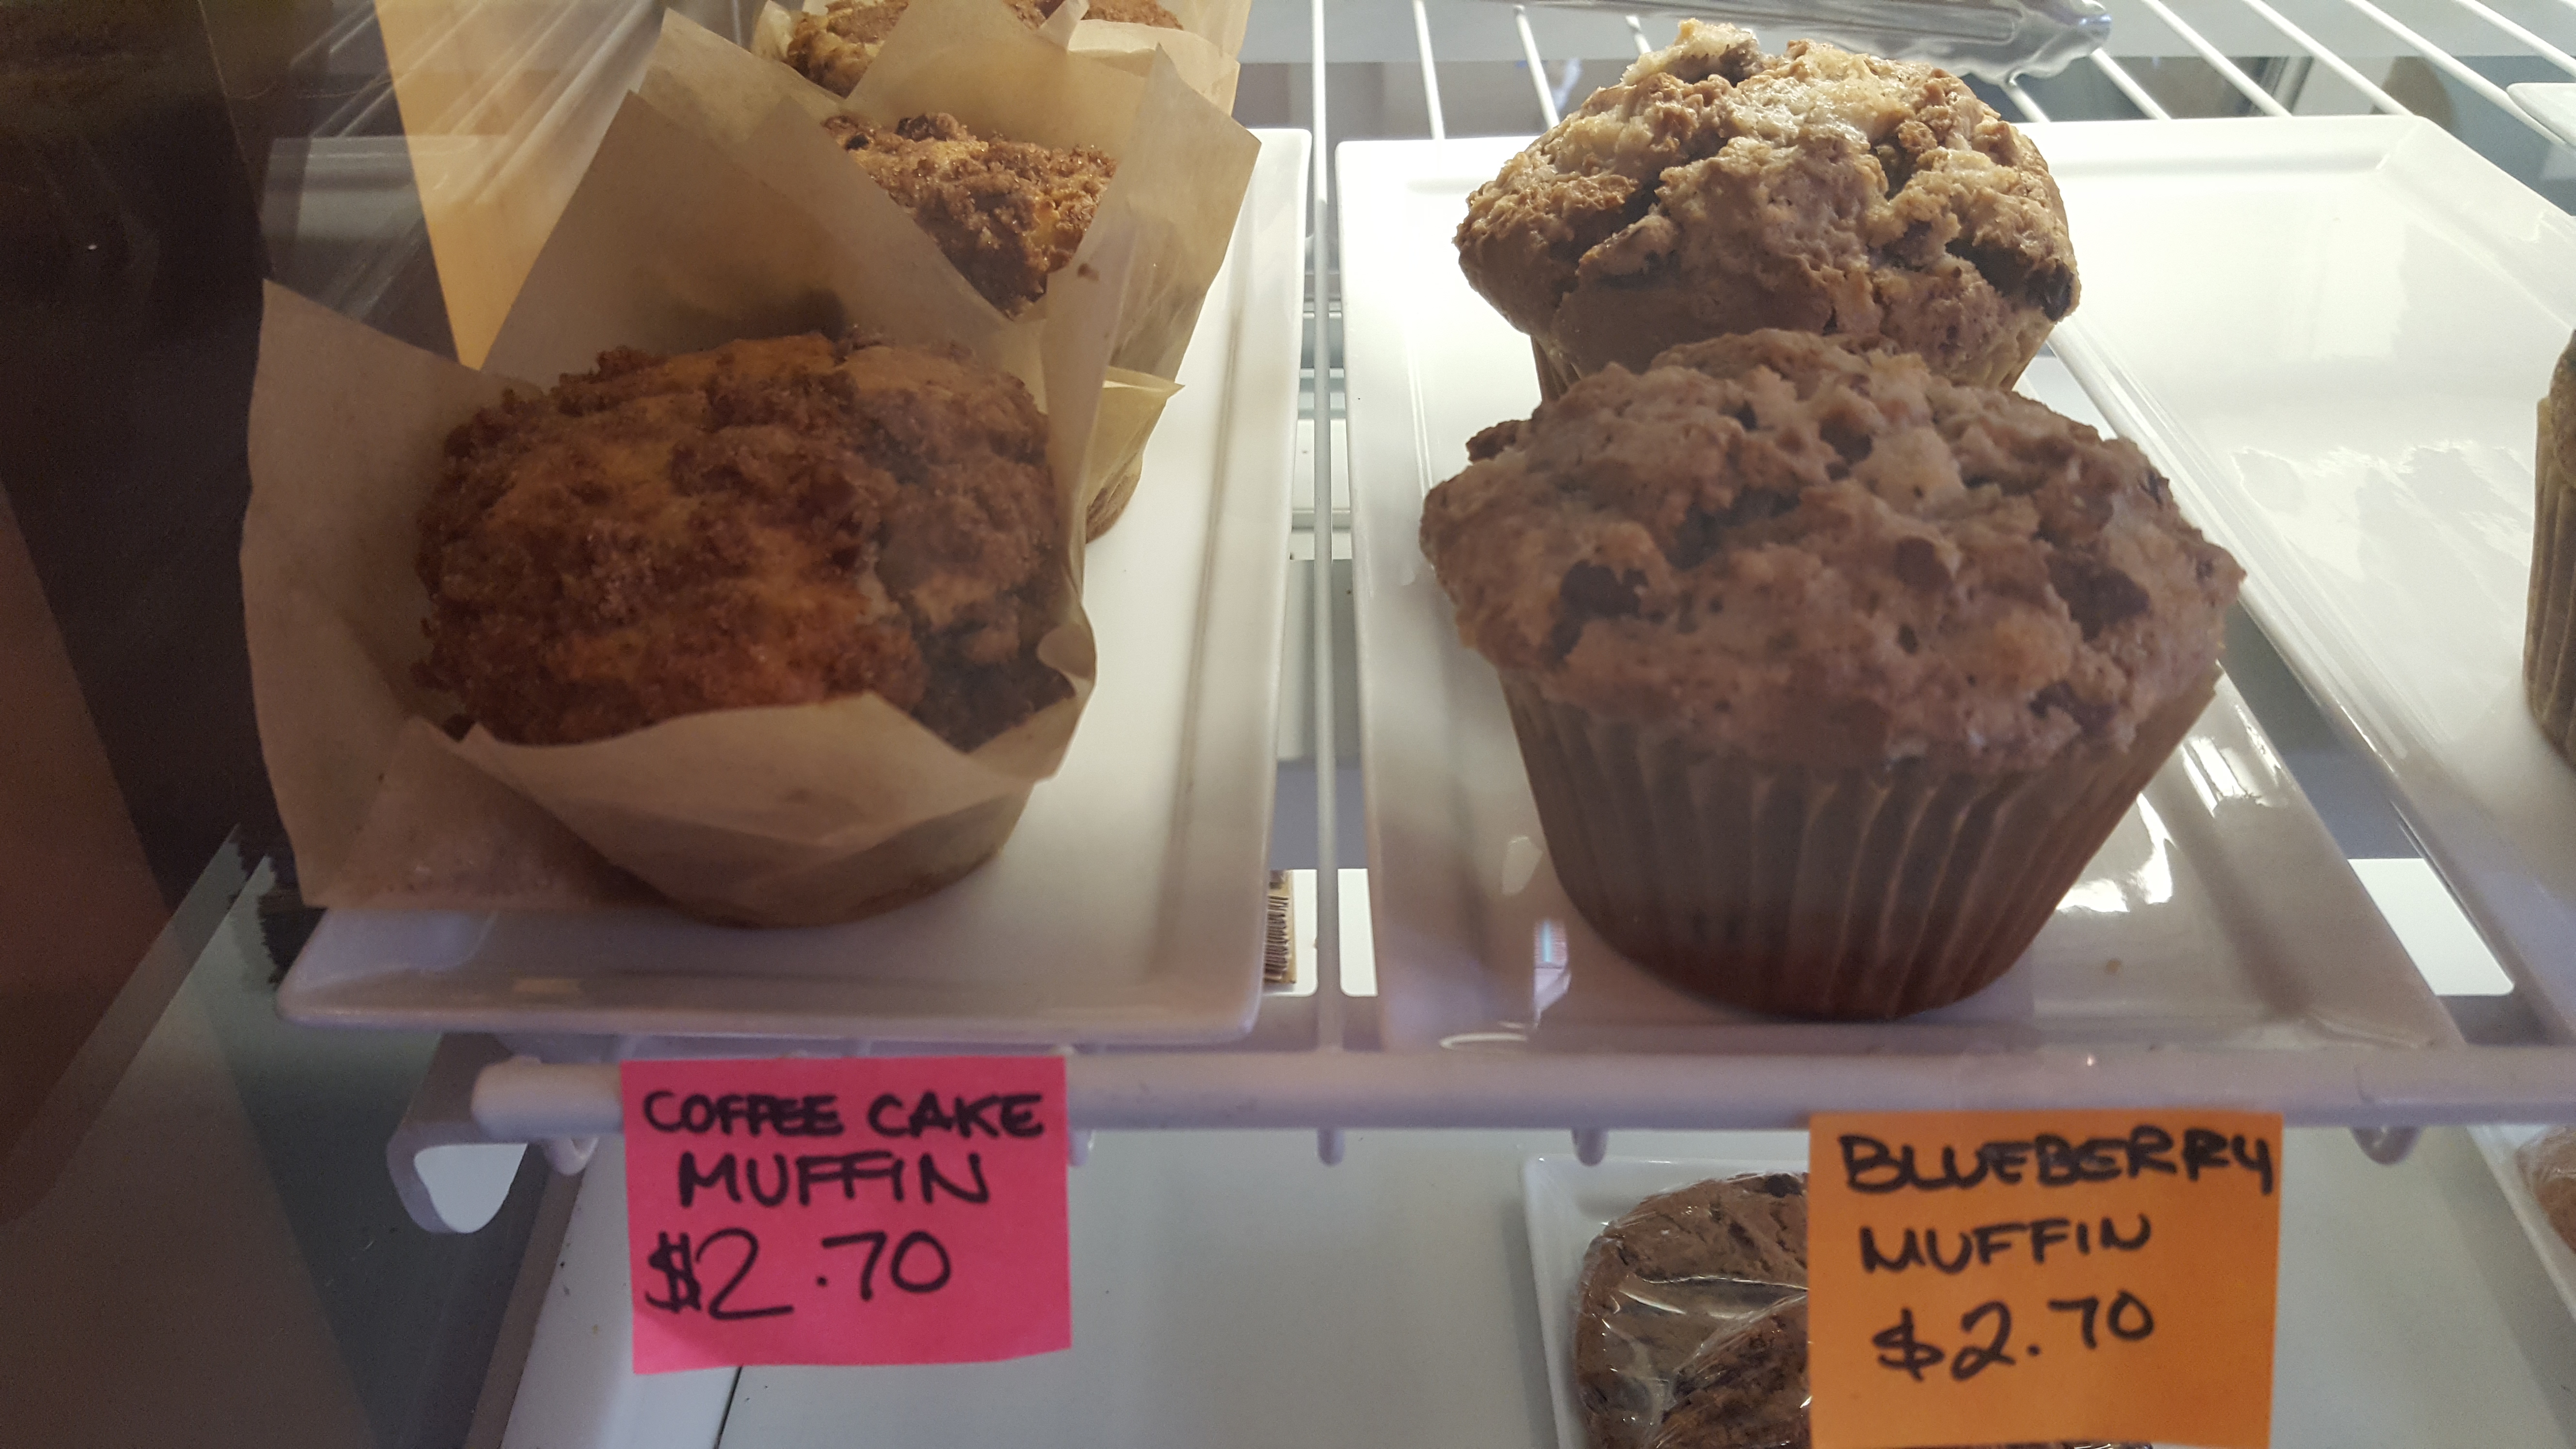 COFFEE CAKE
MUFFIN
$2.70
BLUEBERRY
MUFFIN
$2.70